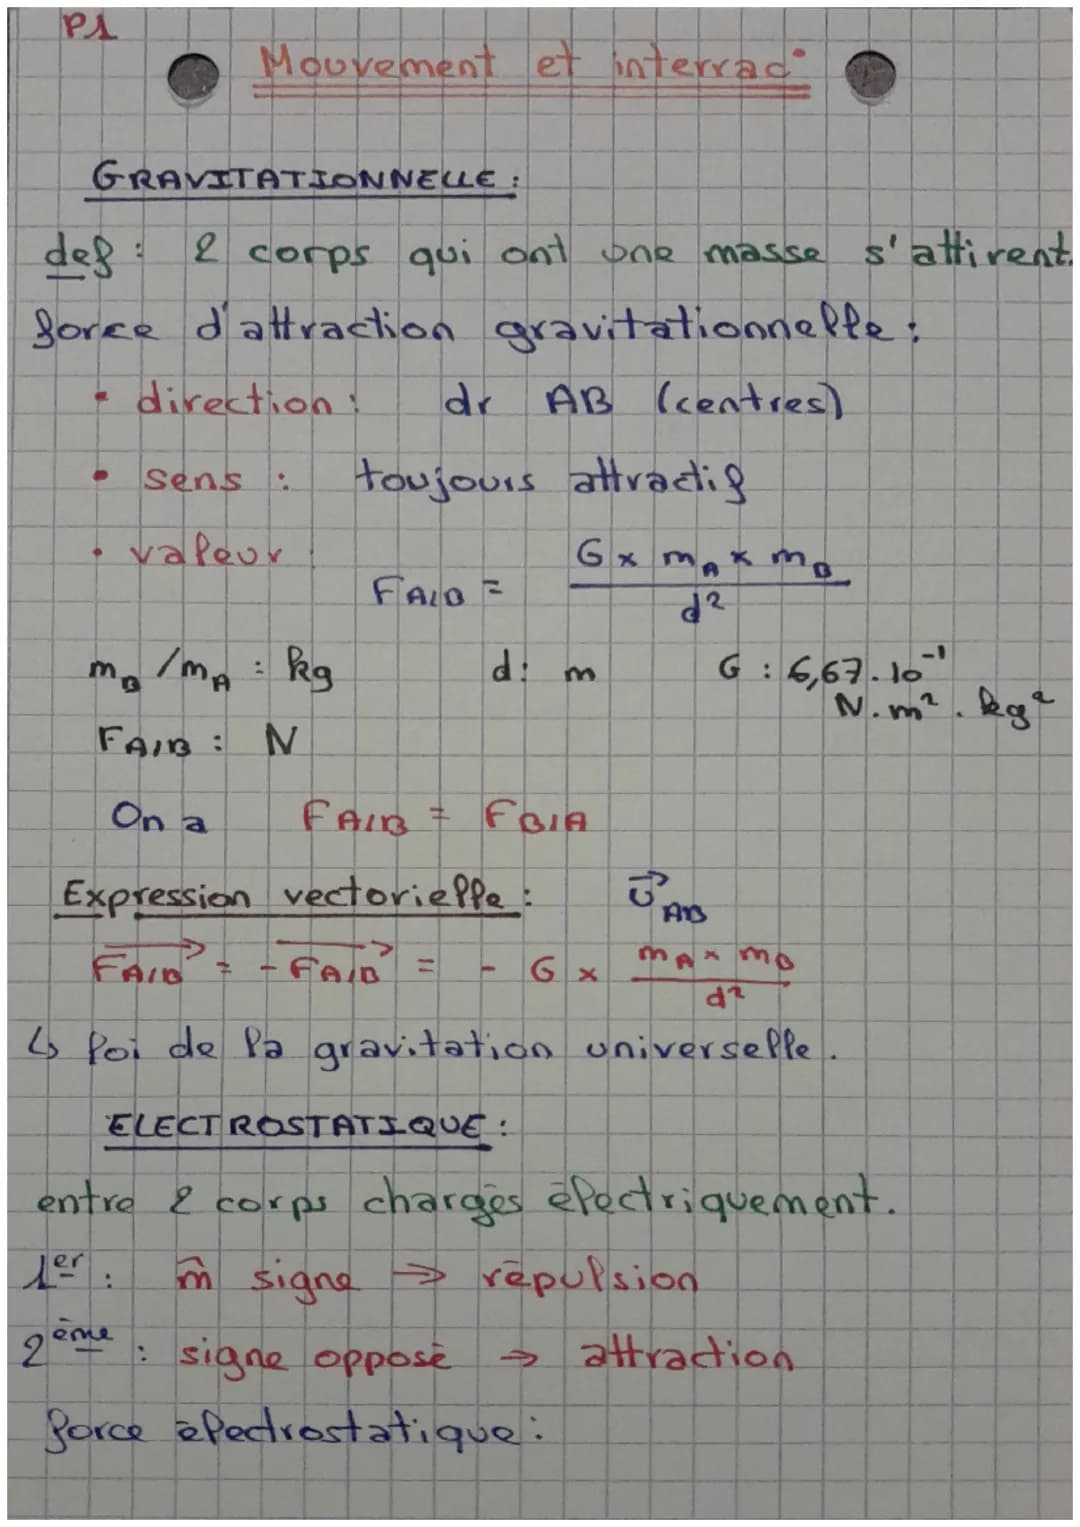 P1
Mouvement et interrac°
GRAVITATIONNELLE :
def : 2 corps qui ont une masse s'attirent.
force d'attraction gravitationnelle :
• direction : dr AB (centres)
• sens : toujours attractif
• valeur : F A/B = G x mA x mB / d²
mB /mA : kg d : m G : 6,67.10⁻¹
N.m². kg²
F A/B : N
On a F A/B = F B/A
Expression vectorielle : →U AB
→F A/B = - →F A/B = - G x mA x mB / d²
↳ loi de la gravitation universelle.
ELECTROSTATIQUE :
entre 2 corps chargés électriquement.
1er : m̂ signe → répulsion
2ème : signe opposé → attraction
force électrostatique :